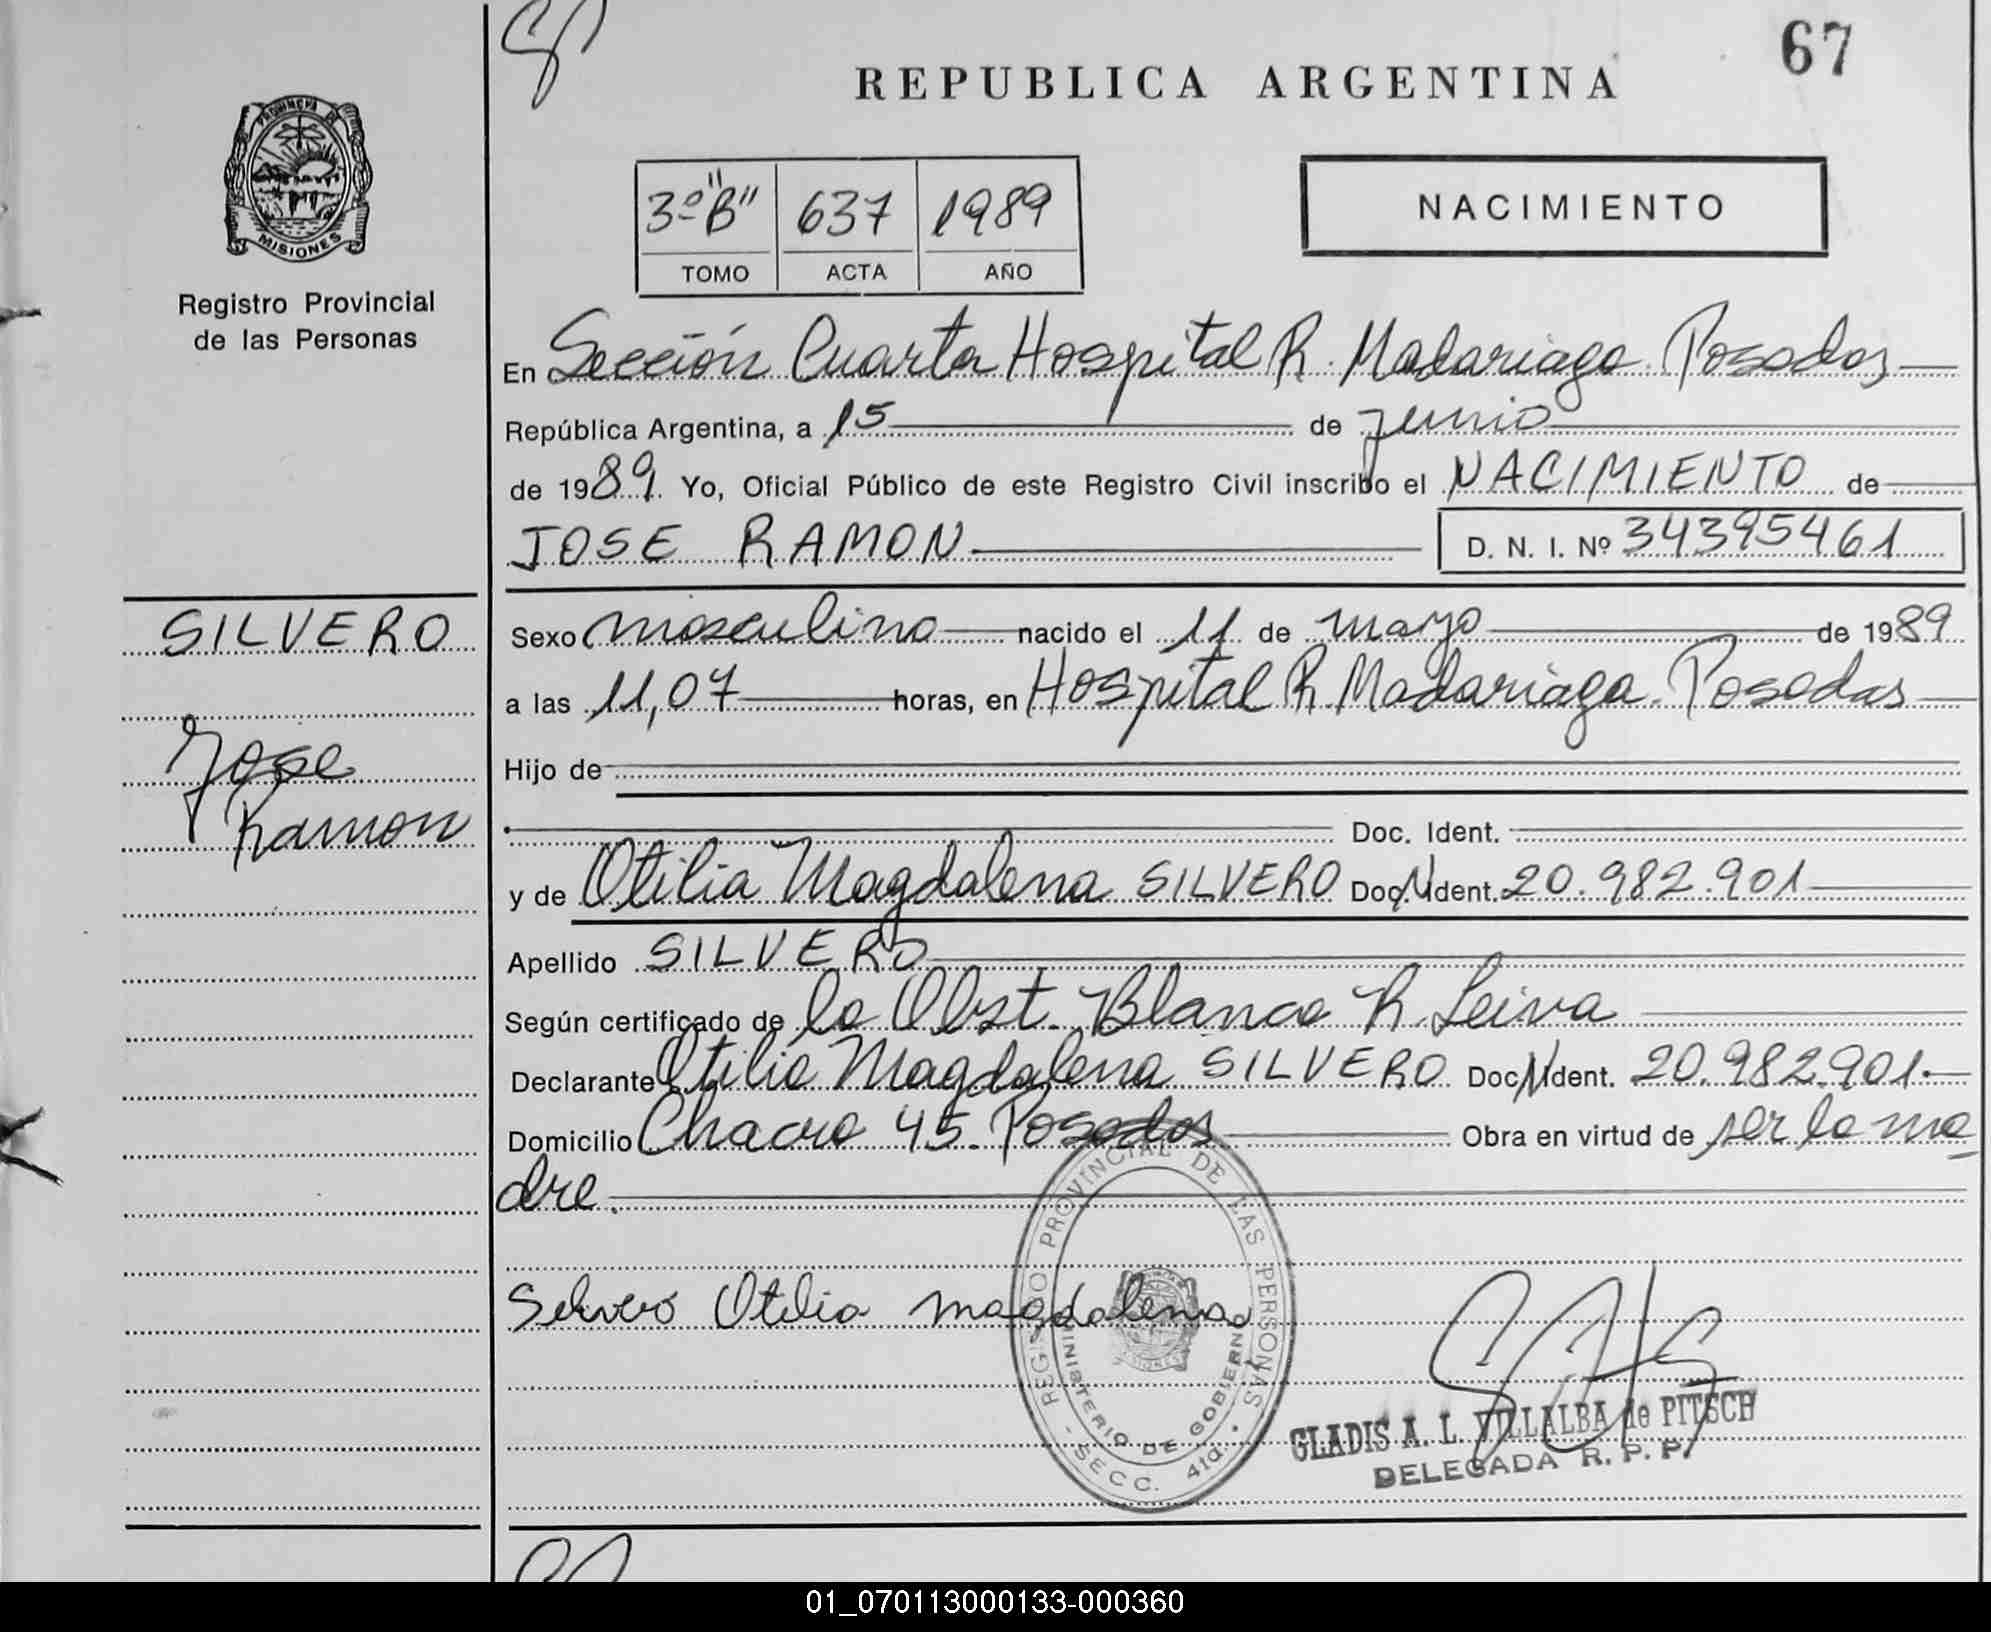 67
REPUBLICA ARGENTINA
PROVINCIA DE
MISIONES
Registro Provincial
de las Personas
3º "B" 637 1989
TOMO ACTA AÑO
NACIMIENTO
En Sección Cuarta Hospital R. Madariaga. Posadas
República Argentina, a 15 de junio
de 1989. Yo, Oficial Público de este Registro Civil inscribo el NACIMIENTO de
JOSE RAMON D. N. I. Nº 34395461
SILVERO
Jose
Ramon
Sexo masculino nacido el 11 de mayo de 1989
a las 11,07 horas, en Hospital R. Madariaga. Posadas
Hijo de
Doc. Ident.
y de Otilia Magdalena SILVERO Doc. Ident. 20.982.901
Apellido SILVERO
Según certificado de la Obst. Blanca R. Leiva
Declarante Otilia Magdalena SILVERO Doc. Ident. 20.982.901.
Domicilio Chacra 45. Posadas Obra en virtud de ser la ma
dre.
Selvero Otilia magdalena
REGISTRO PROVINCIAL DE LAS PERSONAS
MINISTERIO DE GOBIERNO
SECC. 4ta.
GLADIS A. L. VILLALBA de PITSCH
DELEGADA R. P. P.
01_070113000133-000360